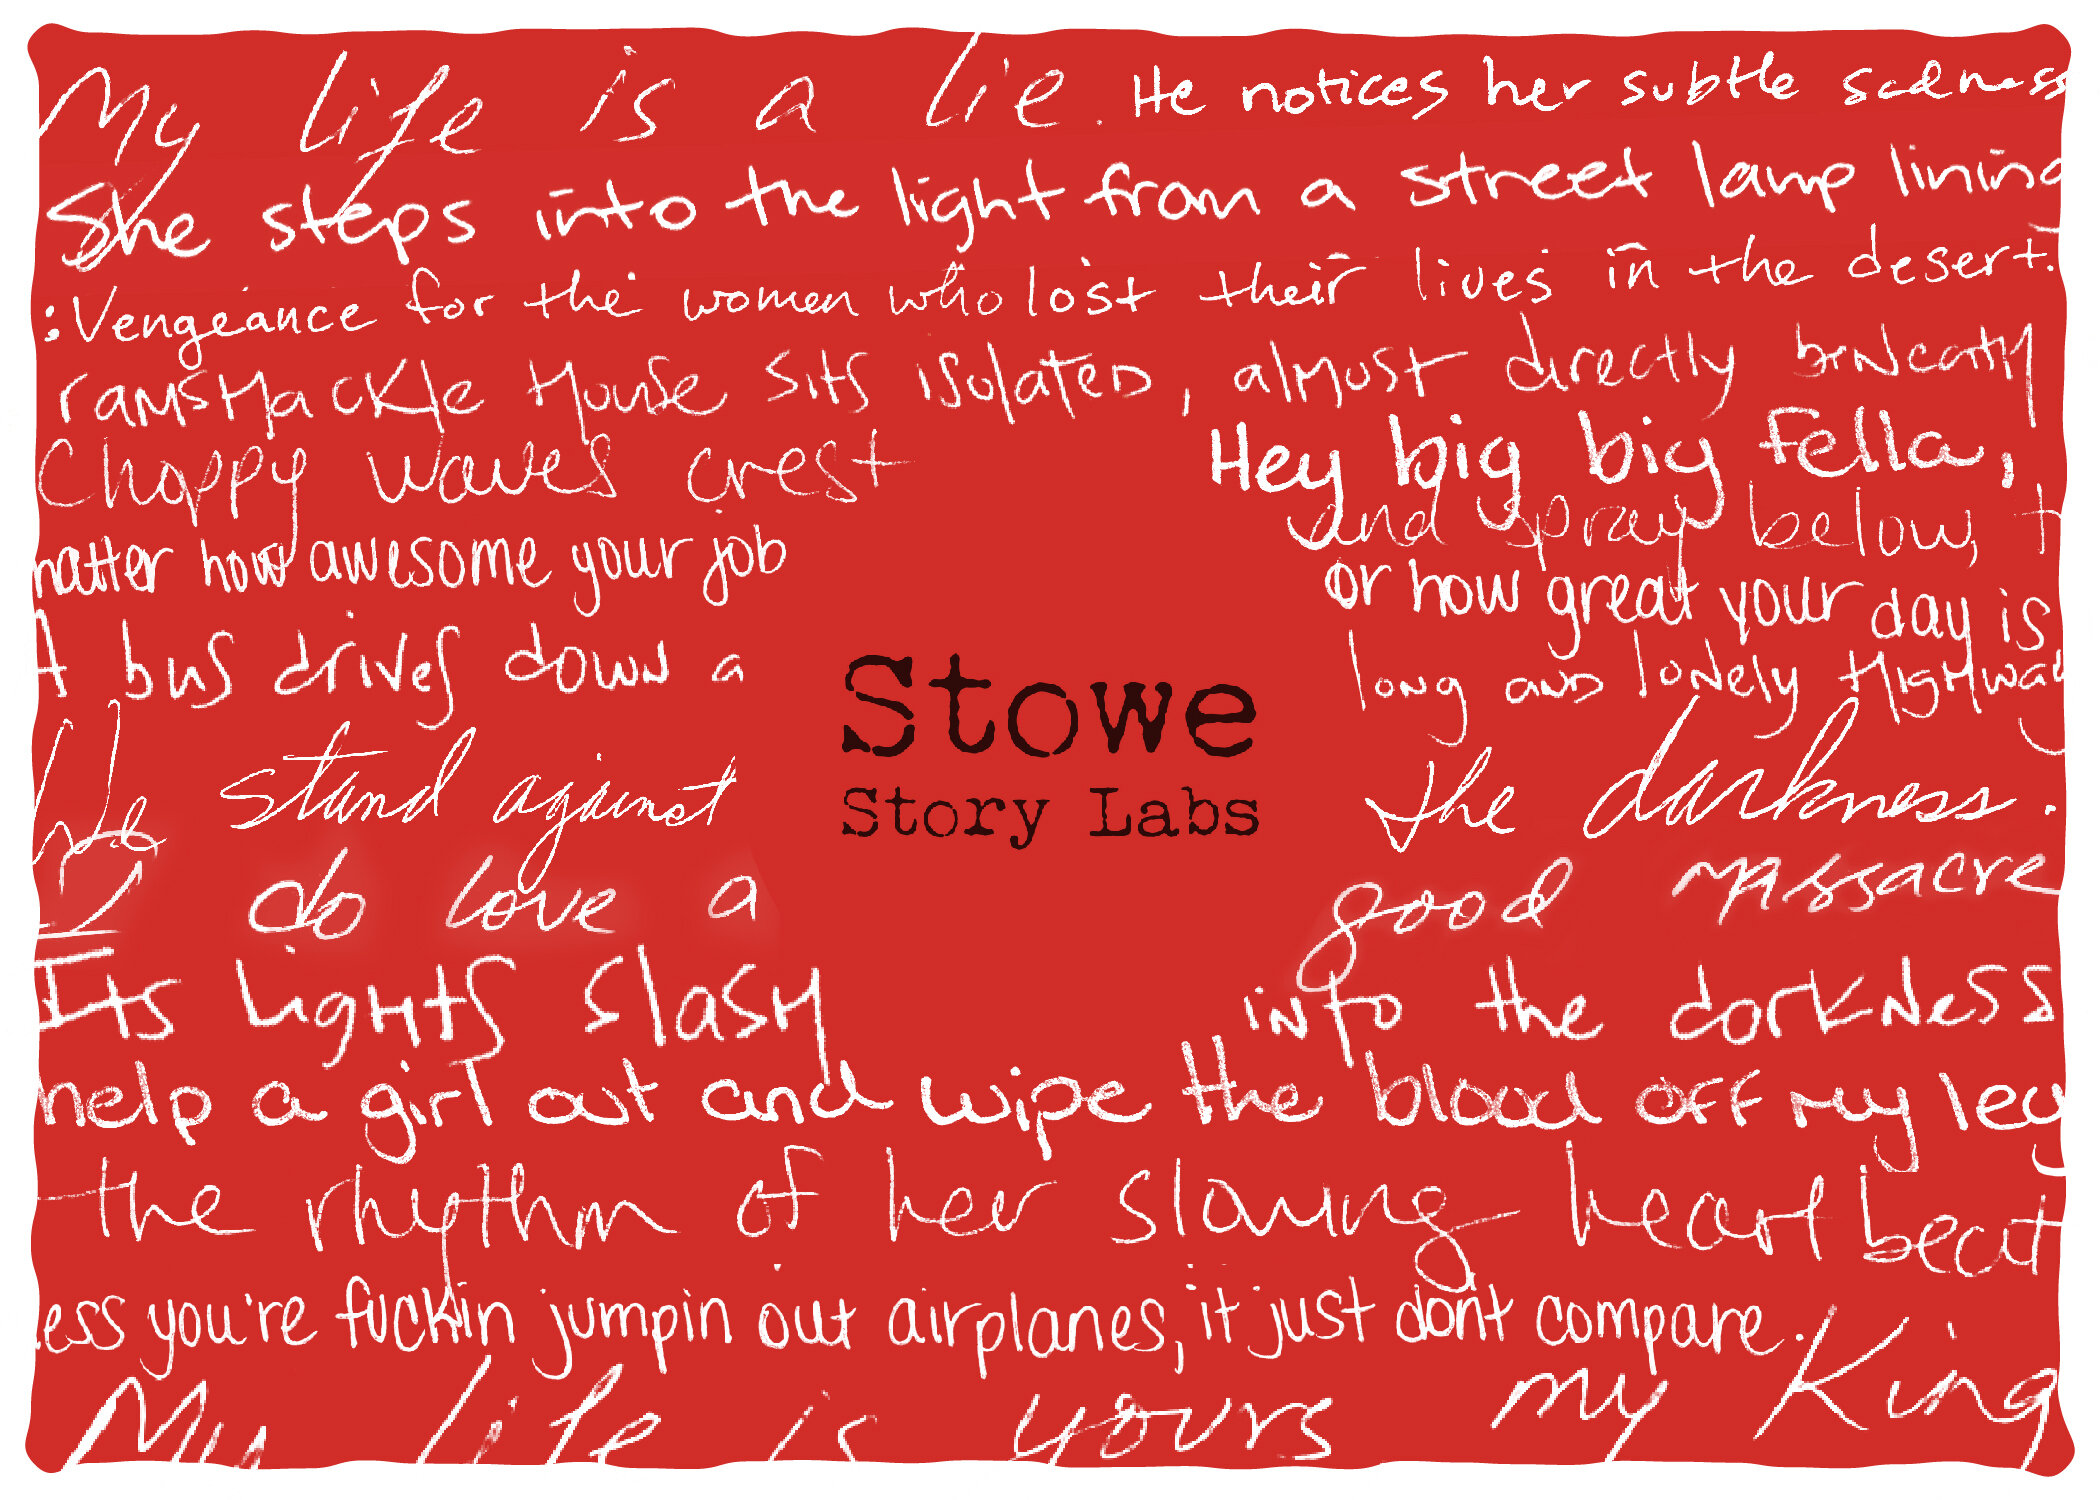 My life is a lie. He notices her subtle sadness
She steps into the light from a street lamp lining
:Vengeance for the women who lost their lives in the desert.
ramsHackle House sits isolateD, alMost directly beNeatH
Choppy waves crest
Hey big big fella,
and spray below, t
matter how awesome your job
or how great your day is
A bus drives down a
long and lonely HigHway
Stowe
Story Labs
We stand against
the darkness.
I do love a
good massacre
Its ligHts slasH
into the darkness
help a girl out and wipe the blood off my leg
the rhythm of her slowing heart beat
ess you're fuckin jumpin out airplanes, it just dont compare.
My life is yours my King